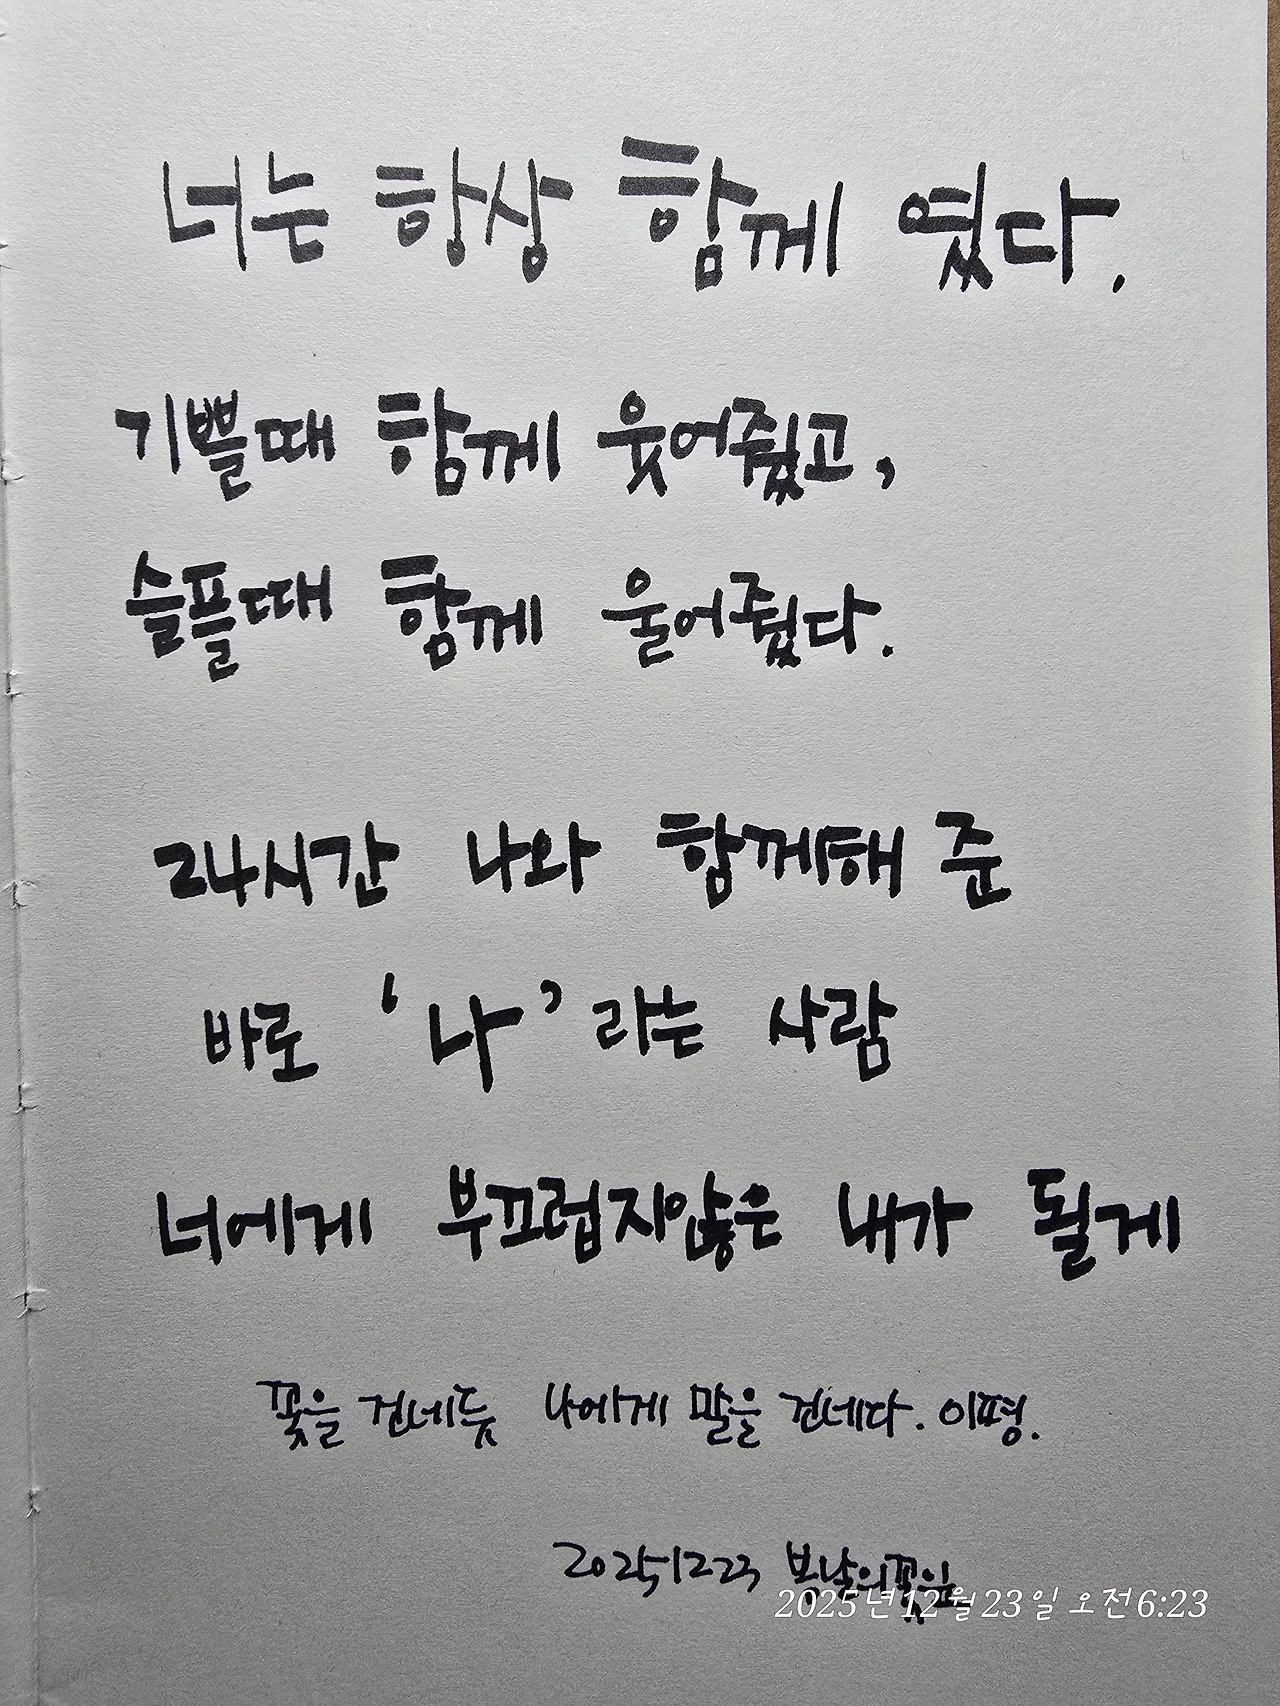 너는 항상 함께 였다.
기쁠때 함께 웃어줬고,
슬플때 함께 울어줬다.
24시간 나와 함께해 준
바로 '나' 라는 사람
너에게 부끄럽지않은 내가 될게
꽃을 건네듯 나에게 말을 건네다. 이평.
20251223 봄날의꽃잎
2025년 12월 23일 오전 6:23